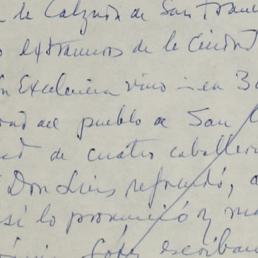 de Calzada de San Fran
extramuros de le Ciudad
Excelencia vino en 3
del pueblo de San
de cuatro caballer
Don Luis refrendó, a
sí lo pronunció y ma
López escriban